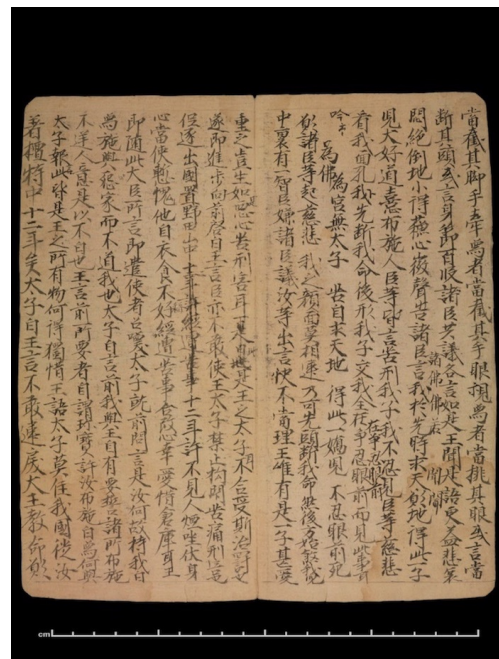 當截其脚手牽馬者當截其手眼視馬者當挑其眼或言當
斷其頭或言身節百段諸臣共議各言如是王聞是語更益悲哀
悶絕倒地小得蘓心微聲告諸臣言我於先時求天地得此一子
兒大好道意布施人臣等皆言苦刑我子我不忍見臣等慈悲
看我面孔我先斷我命後形我子交我忍眼前而見此事
吟 為佛 為空無太子 告自求天地 得此一嬌兒 不忍眼前死
欲諸臣等起慈悲 我之顏面莫相連 乃可先頭斷我命 然後方始煞我兒
中裏有一智臣嫌諸臣議汝等出言快不當理王唯有是一子甚愛
重之豈生如惡心苦刑害耳是王之太子不合受斯治
遂即進步向前啓白王言臣亦不敢使王太子禁止拘閇苦痛刑害
但逐出國置野田山中十二年許不見人煙坐伏身
心當使慙愧他自衣食不好經道坐事愛惜倉庫耳王
即隨此大臣所言即遣使者召喚太子就前問言是汝何故持我白
象施與怨家而不道我也太子白言前我與王自有要誓諸所布施
不逆人意是以不白也王言前所要者自謂珍寶許汝布施白象何與
太子報此皆是王之所有物何得獨惜王語太子莫住我國徙汝
著檀特山中十二年矣太子白王言不敢違戾大王教命願
cm